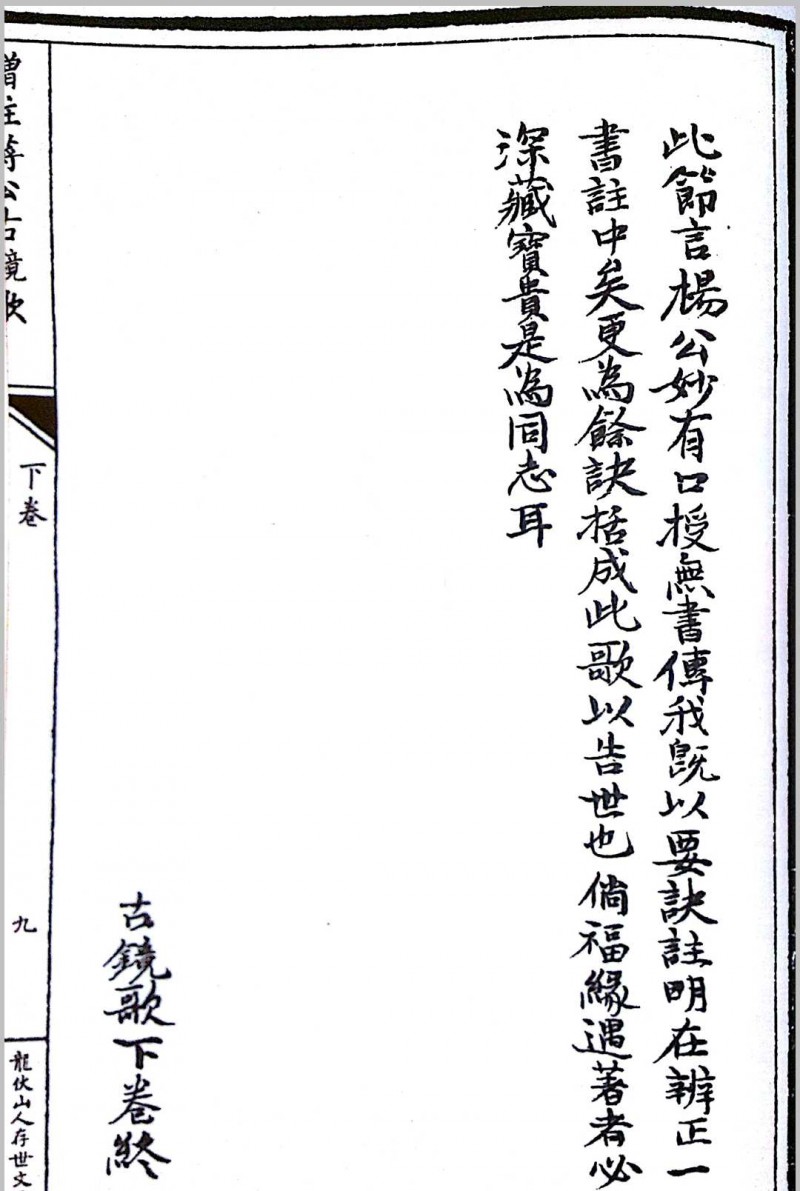 此節言楊公妙有口授無書傳我既以要訣註明在辨正一
書註中矣更為餘訣括成此歌以告世也倘福緣遇著者必
深藏寶貴是為同志耳
古鏡歌下卷終
增註蔣公古鏡歌
下卷
九
龍伏山人存世文